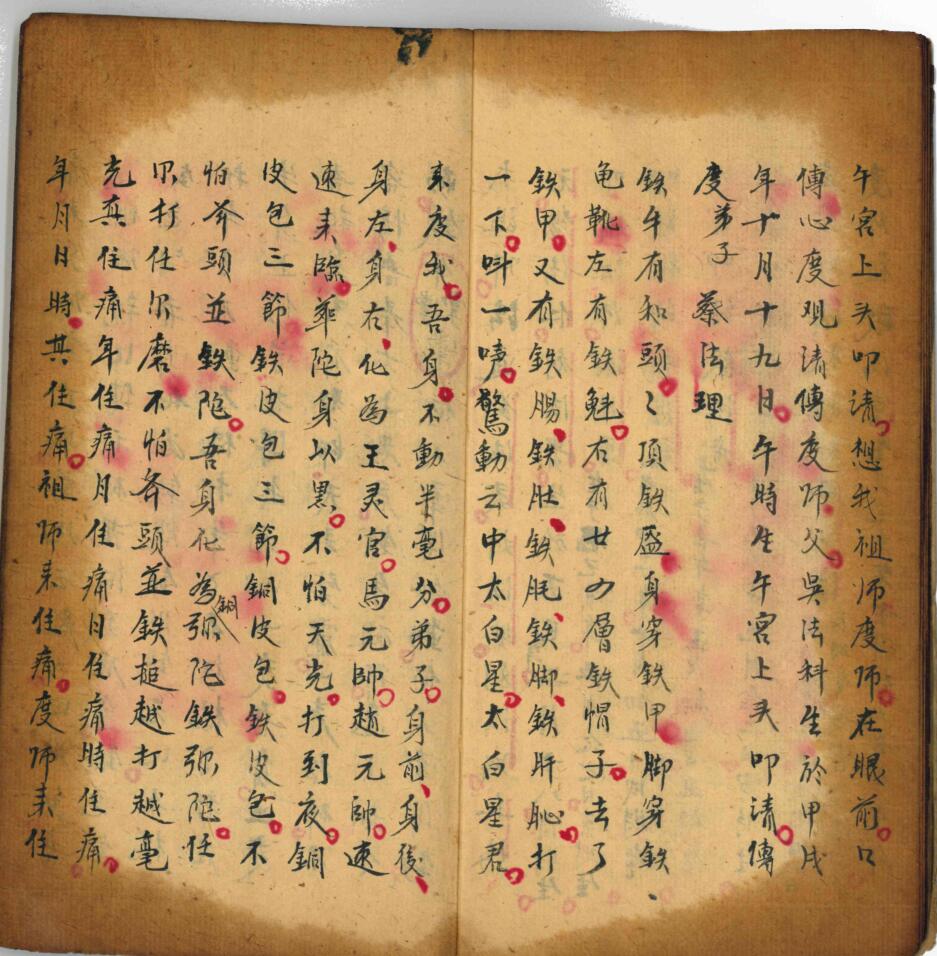 午宮上头叩請想我祖师度师在眼前口
傳心度观清傳度师父吳法科生於甲戌
年十月十九日午時生午宮上头叩請傳
度弟子 蔡法理
鉄牛有和頭〻頂鉄盔身穿鉄甲脚穿鉄
龟靴左有鉄魁右有廿四層鉄帽子去了
鉄甲又有鉄腸鉄肚鉄毛鉄脚鉄肝 打
一下叫一声驚動云中太白星太白星君
来度我吾身不動半毫分弟子身前身後
身左身右化為王灵官馬元帥趙元帥速
速来臨華陀身以黑不怕天光打到夜銅
皮包三節鉄皮包三節銅皮包鉄皮包不
怕斧頭並鉄陀吾身化為銅弥陀鉄弥陀任
尔打任尔磨不怕斧頭並鉄搥越打越毫
光真住痛年住痛月住痛日住痛時住痛
年月日時其住痛祖师来住痛度师来住